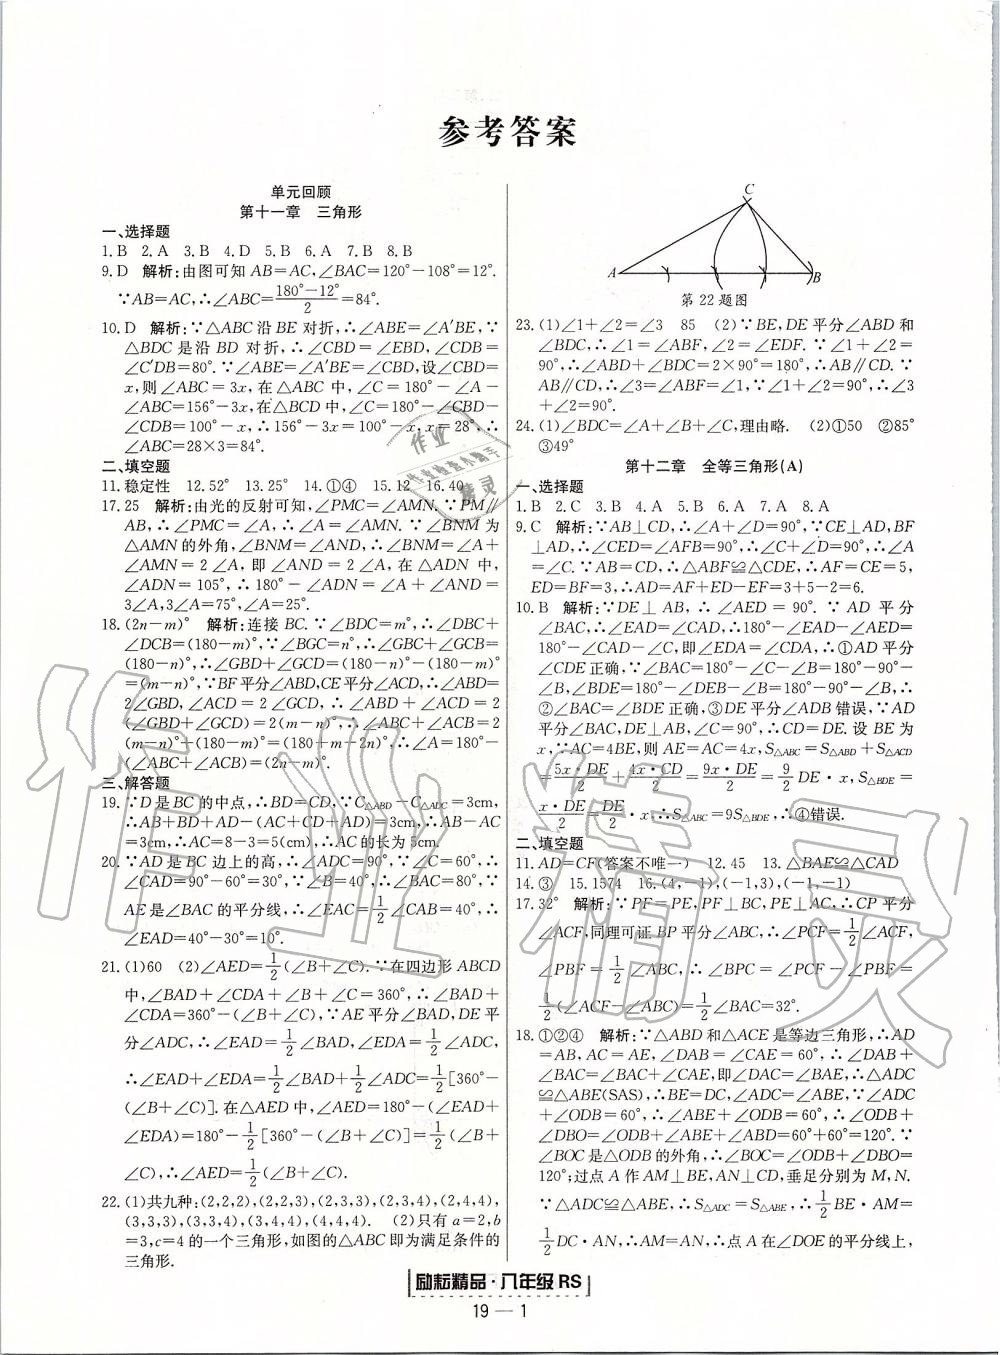 参考答案
单元回顾
第十一章 三角形
一、选择题
1.B 2.A 3.B 4.D 5.B 6.A 7.B 8.B
9.D 解析:由图可知 AB=AC,∠BAC=120°-108°=12°.
∵AB=AC,∴∠ABC=(180°-12°)/2=84°.
10.D 解析:∵△ABC 沿 BE 对折,∴∠ABE=∠A′BE,∵
△BDC 是沿 BD 对折,∴∠CBD=∠EBD,∠CDB=
∠C′DB=80°.∵∠ABE=∠A′BE=∠CBD,设∠CBD=
x,则∠ABC=3x,在△ABC 中,∠C=180°-∠A-
∠ABC=156°-3x,在△BCD 中,∠C=180°-∠CBD-
∠CDB=100°-x,∴156°-3x=100°-x,x=28°,∴
∠ABC=28×3=84°.
二、填空题
11.稳定性 12.52° 13.25° 14.①④ 15.12 16.40
17.25 解析:由光的反射可知,∠PMC=∠AMN.∵PM∥
AB,∴∠PMC=∠A,∴∠A=∠AMN.∵∠BNM 为
△AMN 的外角,∠BNM=∠AND,∴∠BNM=∠A+
∠AMN=2∠A,即∠AND=2∠A,在△ADN 中,
∠ADN=105°,∴180°-∠ADN=∠A+∠AND=
3∠A,3∠A=75°,∠A=25°.
18.(2n-m)° 解析:连接 BC.∵∠BDC=m°,∴∠DBC+
∠DCB=(180-m)°,∵∠BGC=n°,∴∠GBC+∠GCB=
(180-n)°,∴∠GBD+∠GCD=(180-n)°-(180-m)°
=(m-n)°,∵BF平分∠ABD,CE平分∠ACD,∴∠ABD=
2∠GBD,∠ACD=2∠GCD,∴∠ABD+∠ACD=2
(∠GBD+∠GCD)=2(m-n)°,∴∠ABC+∠ACB=2
(m-n)°+(180-m)°=(180+m-2n)°,∴∠A=180°-
(∠ABC+∠ACB)=(2n-m)°.
三、解答题
19.∵D 是 BC 的中点,∴BD=CD,∵C△ABD-C△ADC=3cm,
∴AB+BD+AD-(AC+CD+AD)=3cm,∴AB-AC
=3cm,∴AC=8-3=5(cm),∴AC 的长为 5cm.
20.∵AD 是 BC 边上的高,∴∠ADC=90°.∵∠C=60°,∴
∠CAD=90°-60°=30°,∵∠B=40°,∴∠BAC=80°,∵
AE 是∠BAC 的平分线,∴∠EAC=1/2∠CAB=40°,∴
∠EAD=40°-30°=10°.
21.(1)60 (2)∠AED=1/2(∠B+∠C).∵在四边形 ABCD
中,∠BAD+∠CDA+∠B+∠C=360°,∴∠BAD+
∠CDA=360°-(∠B+∠C),∵AE 平分∠BAD,DE 平
分∠ADC,∴∠EAD=1/2∠BAD,∠EDA=1/2∠ADC,
∴∠EAD+∠EDA=1/2∠BAD+1/2∠ADC=1/2[360°-
(∠B+∠C)].在△AED 中,∠AED=180°-(∠EAD+
∠EDA)=180°-1/2[360°-(∠B+∠C)]=1/2(∠B+
∠C),∴∠AED=1/2(∠B+∠C).
22.(1)共九种:(2,2,2),(2,2,3),(2,3,3),(2,3,4),(2,4,4),
(3,3,3),(3,3,4),(3,4,4),(4,4,4). (2)只有 a=2,b
=3,c=4 的一个三角形,如图的△ABC 即为满足条件的
三角形.
C
A
B
第 22 题图
23.(1)∠1+∠2=∠3 85 (2)∵BE,DE 平分∠ABD 和
∠BDC,∴∠1=∠ABF,∠2=∠EDF.∵∠1+∠2=
90°,∴∠ABD+∠BDC=2×90°=180°,∴AB∥CD.∵
AB∥CD,∴∠3=∠ABF=∠1,∵∠1+∠2=90°,∴∠3
+∠2=90°.
24.(1)∠BDC=∠A+∠B+∠C,理由略. (2)①50 ②85°
③49°
第十二章 全等三角形(A)
一、选择题
1.B 2.C 3.B 4.A 5.B 6.A 7.B 8.A
9.C 解析:∵AB⊥CD,∴∠A+∠D=90°,∵CE⊥AD,BF
⊥AD,∴∠CED=∠AFB=90°,∴∠C+∠D=90°,∴∠A
=∠C.∵AB=CD,∴△ABF≌△CDE,∴AF=CE=5,
ED=BF=3,∴AD=AF+ED-EF=3+5-2=6.
10.B 解析:∵DE⊥AB,∴∠AED=90°.∵AD 平分
∠BAC,∴∠EAD=∠CAD,∴180°-∠EAD-∠AED=
180°-∠CAD-∠C,即∠EDA=∠CDA,∴①AD 平分
∠CDE 正确,∵∠BAC=180°-∠C-∠B=180°-90°-
∠B,∠BDE=180°-∠DEB-∠B=180°-90°-∠B,∴
②∠BAC=∠BDE 正确,③DE 平分∠ADB 错误,∵AD
平分∠BAC,DE⊥AB,∠C=90°,∴CD=DE.设 BE 为
x,∵AC=4BE,则 AE=AC=4x,S△ABC=S△ABD+S△ACD
=5x·DE/2+4x·CD/2=9x·DE/2=9/2 DE·x,S△BDE=
x·DE/2=DE/2·x,∴S△ABC=9S△BDE,∴④错误.
二、填空题
11.AD=CF(答案不唯一) 12.45 13.△BAE≌△CAD
14.③ 15.1574 16.(4,-1),(-1,3),(-1,-1)
17.32° 解析:∵PF=PE,PF⊥BC,PE⊥AC,∴CP 平分
∠ACF,同理可证 BP 平分∠ABC,∴∠PCF=1/2∠ACF,
∠PBF=1/2∠ABC,∴∠BPC=∠PCF-∠PBF=
1/2(∠ACF-∠ABC)=1/2∠BAC=32°.
18.①②④ 解析:∵△ABD 和△ACE 是等边三角形,∴AD
=AB,AC=AE,∠DAB=∠CAE=60°,∴∠DAB+
∠BAC=∠BAC+∠CAE,即∠DAC=∠BAE,∴△ADC
≌△ABE(SAS),∴BE=DC,∠ADC=∠ABE,∵∠ADC
+∠ODB=60°,∴∠ABE+∠ODB=60°,∴∠ODB+
∠DBO=∠ODB+∠ABE+∠ABD=60°+60°=120°.∵
∠BOC 是△ODB 的外角,∴∠BOC=∠ODB+∠DBO=
120°;过点 A 作 AM⊥BE,AN⊥CD,垂足分别为 M,N.
∵△ADC≌△ABE,∴S△ADC=S△ABE,∴1/2BE·AM=
1/2DC·AN,∴AM=AN,∴点 A 在∠DOE 的平分线上,
励耘精品·八年级 RS
19 — 1
作业精灵
作业
精灵